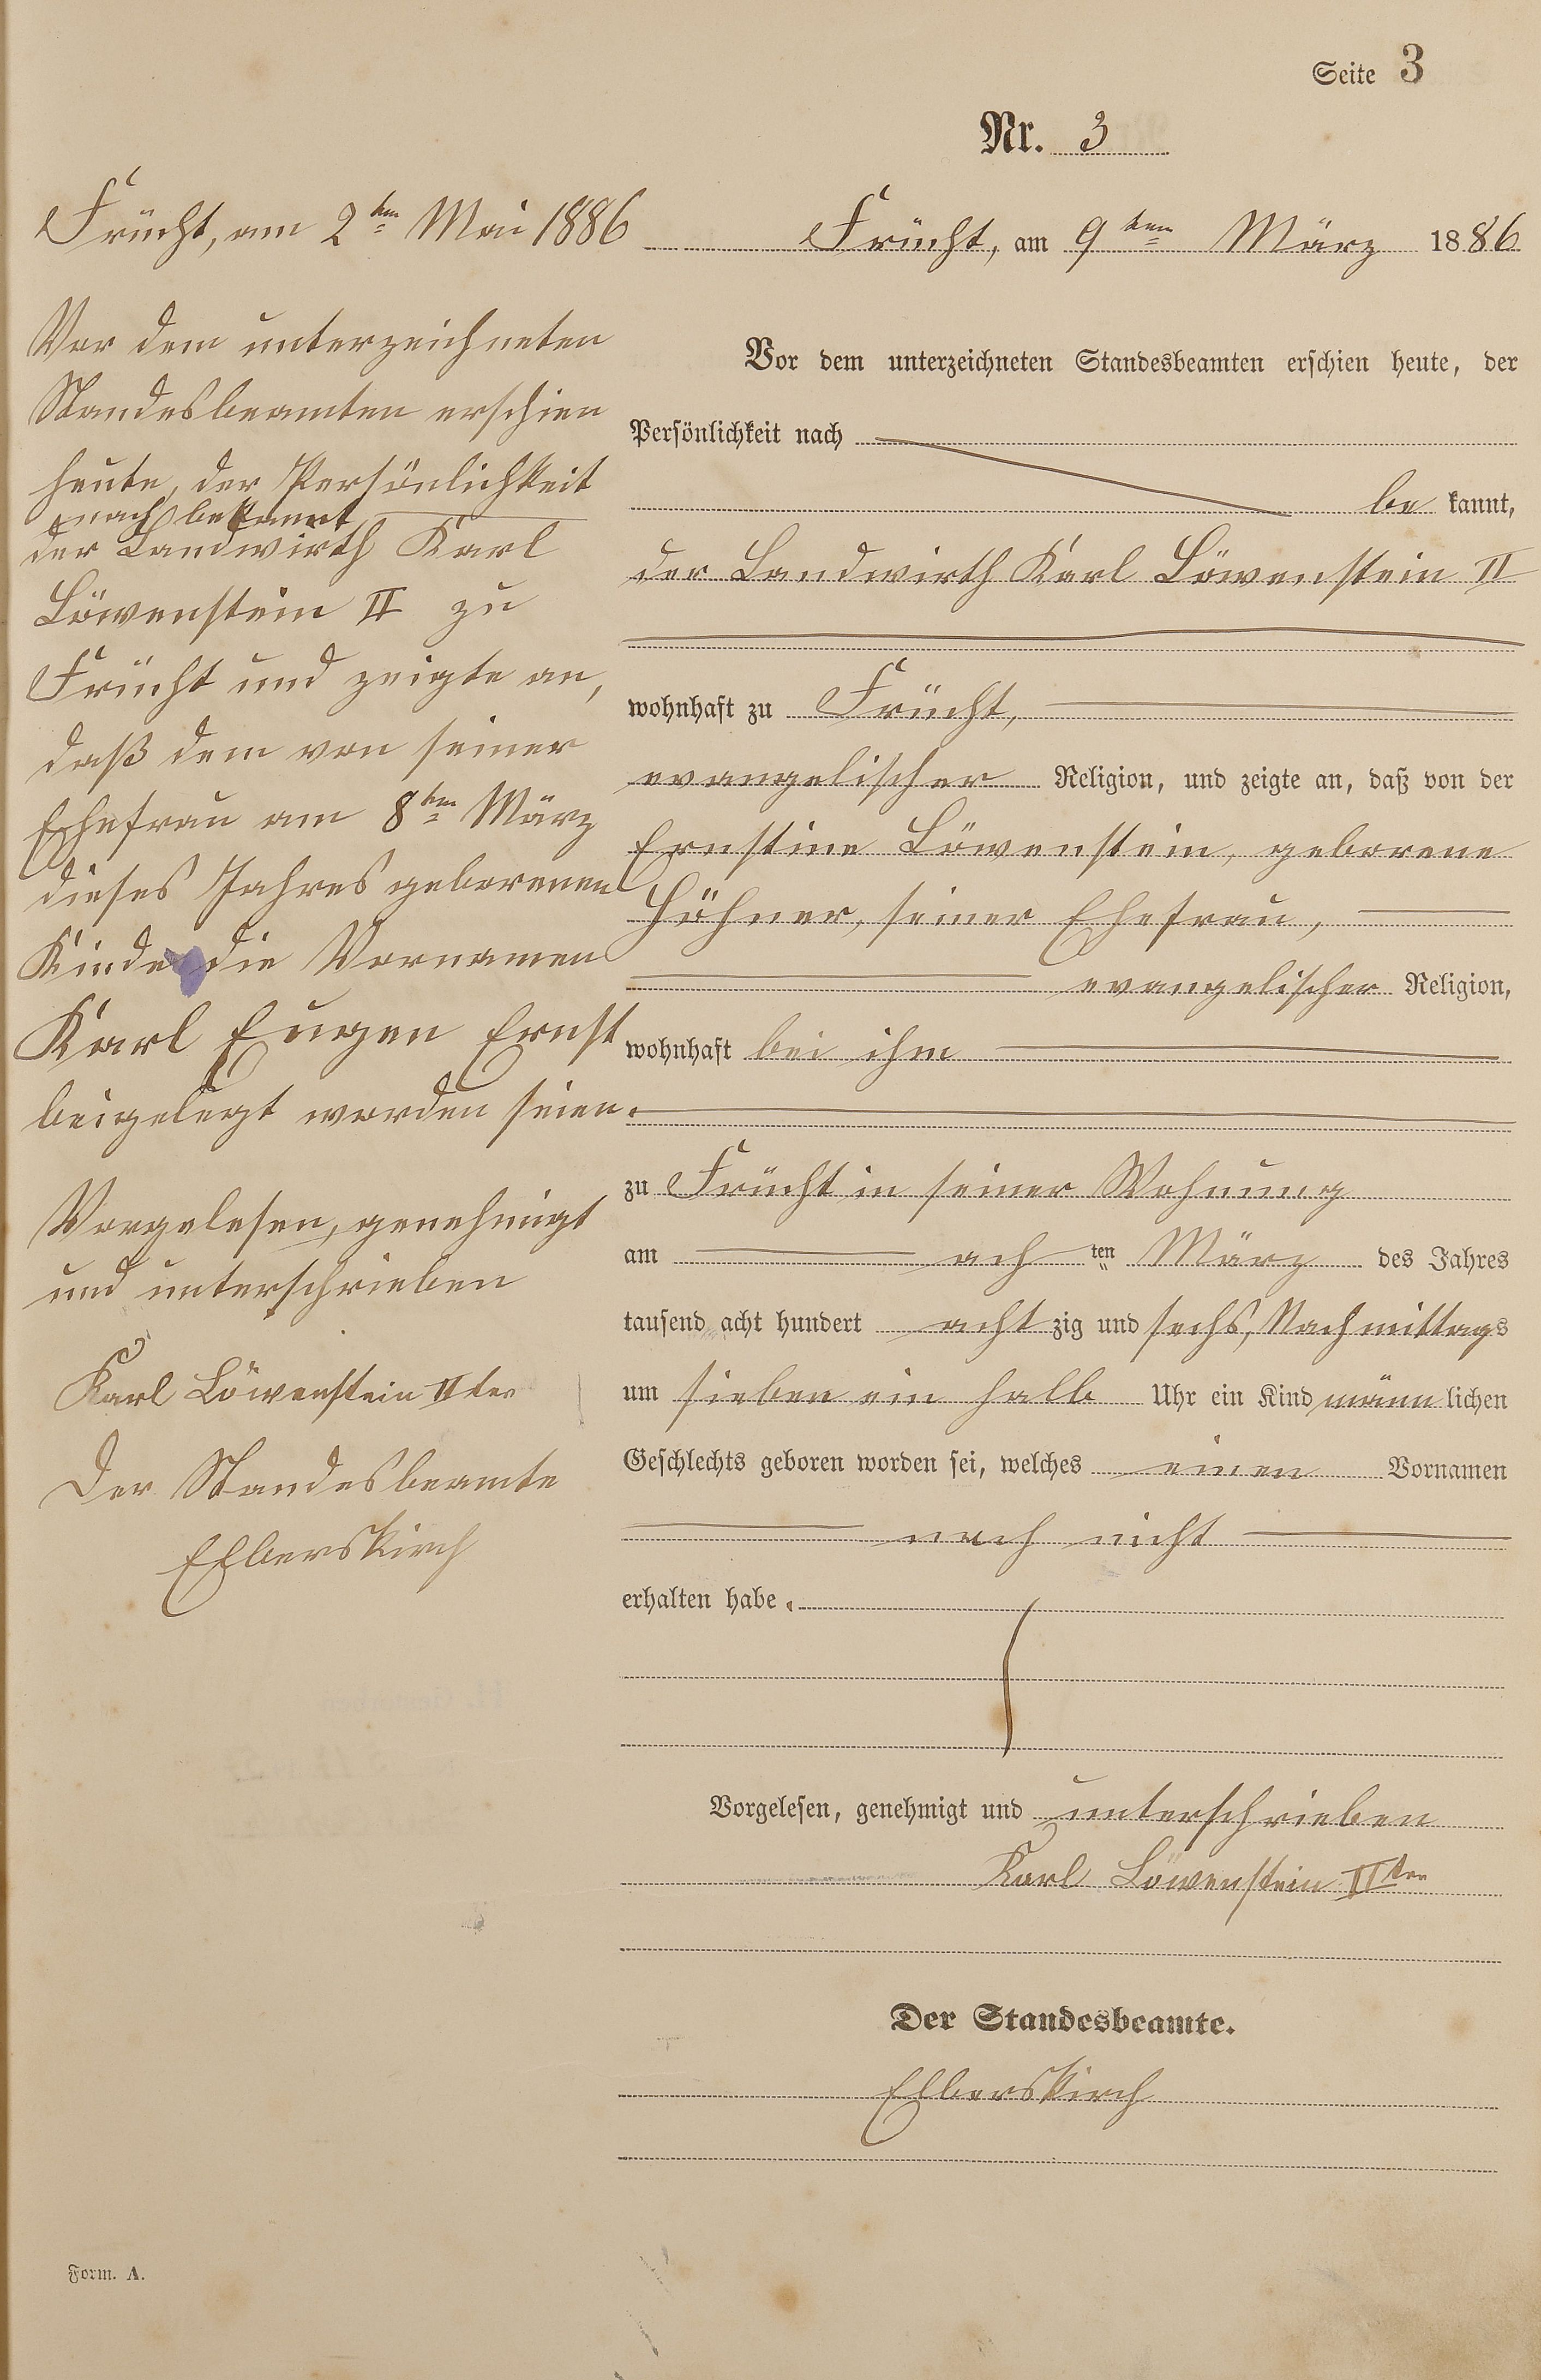 Seite 3
Nr. 3
Frücht, am 2ten Mai 1886
Vor dem unterzeichneten
Standesbeamten erschien
heute, der Persönlichkeit
nach bekannt
der Landwirth Karl
Löwenstein II zu
Frücht und zeigte an,
daß dem von seiner
Ehefrau am 8ten März
dieses Jahres geborenen
Kinde die Vornamen
Karl Eugen Ernst
beigelegt worden seien.
Vorgelesen, genehmigt
und unterschrieben
Karl Löwenstein IIter
Der Standesbeamte
Elberskirch
Frücht, am 9ten März 1886
Vor dem unterzeichneten Standesbeamten erschien heute, der
Persönlichkeit nach
be kannt,
der Landwirth Karl Löwenstein II
wohnhaft zu Frücht,
evangelischer Religion, und zeigte an, daß von der
Ernstine Löwenstein, geborene
Höhner, seiner Ehefrau,
evangelischer Religion,
wohnhaft bei ihm
zu Frücht in seiner Wohnung
am ach ten März des Jahres
tausend acht hundert acht zig und sechs, Nachmittags
um sieben ein halb Uhr ein Kind männ lichen
Geschlechts geboren worden sei, welches einen Vornamen
noch nicht
erhalten habe.
Vorgelesen, genehmigt und unterschrieben
Karl Löwenstein IIter
Der Standesbeamte.
Elberskirch
Form. A.